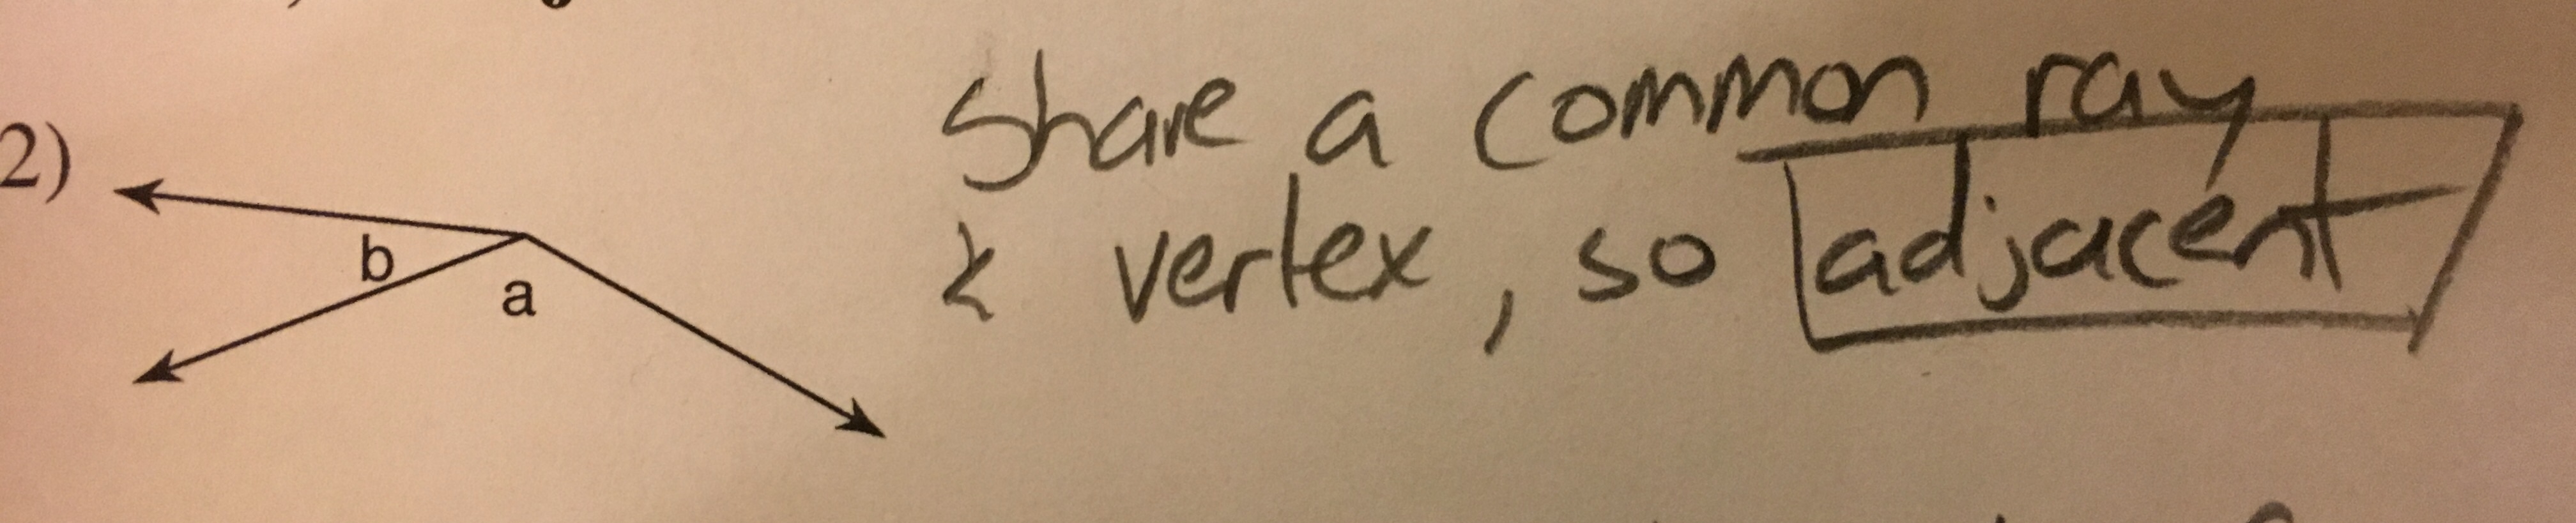 2)
b
a
Share a common ray
& vertex, so adjacent